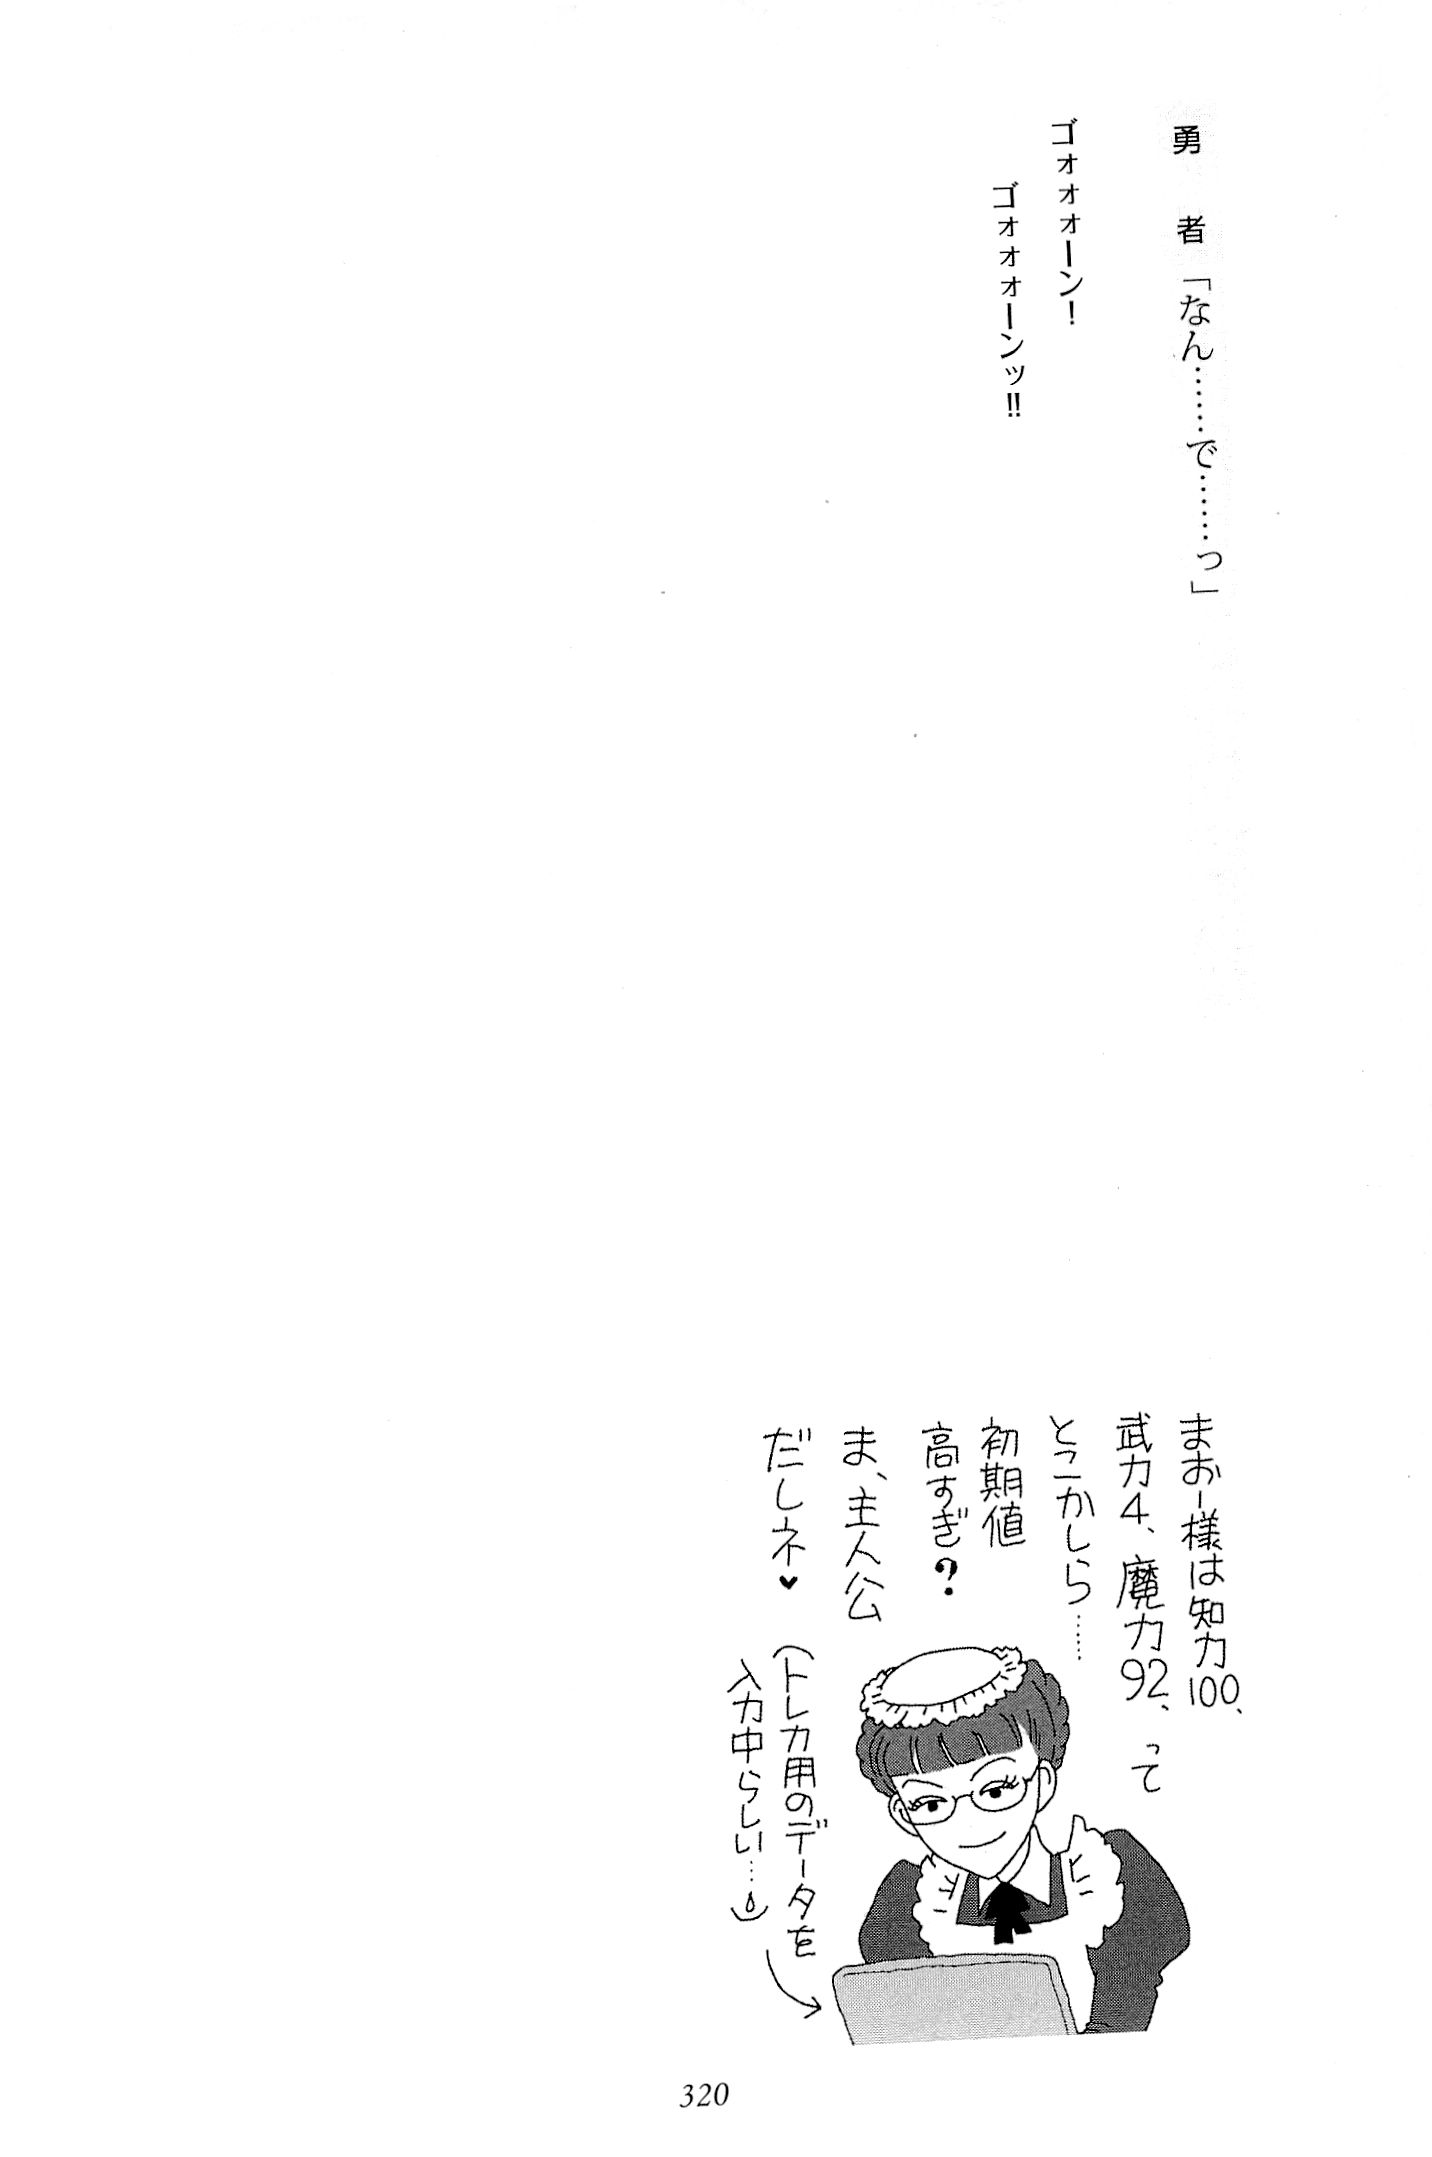 勇者「なん……で……っ」
ゴォォォーン！
ゴォォォーンッ!!
まおー様は知力100、
武力4、魔力92、って
とこかしら……
初期値
高すぎ？
ま、主人公
だしネ♥
（トレカ用のデータを
入力中らしい…）
320